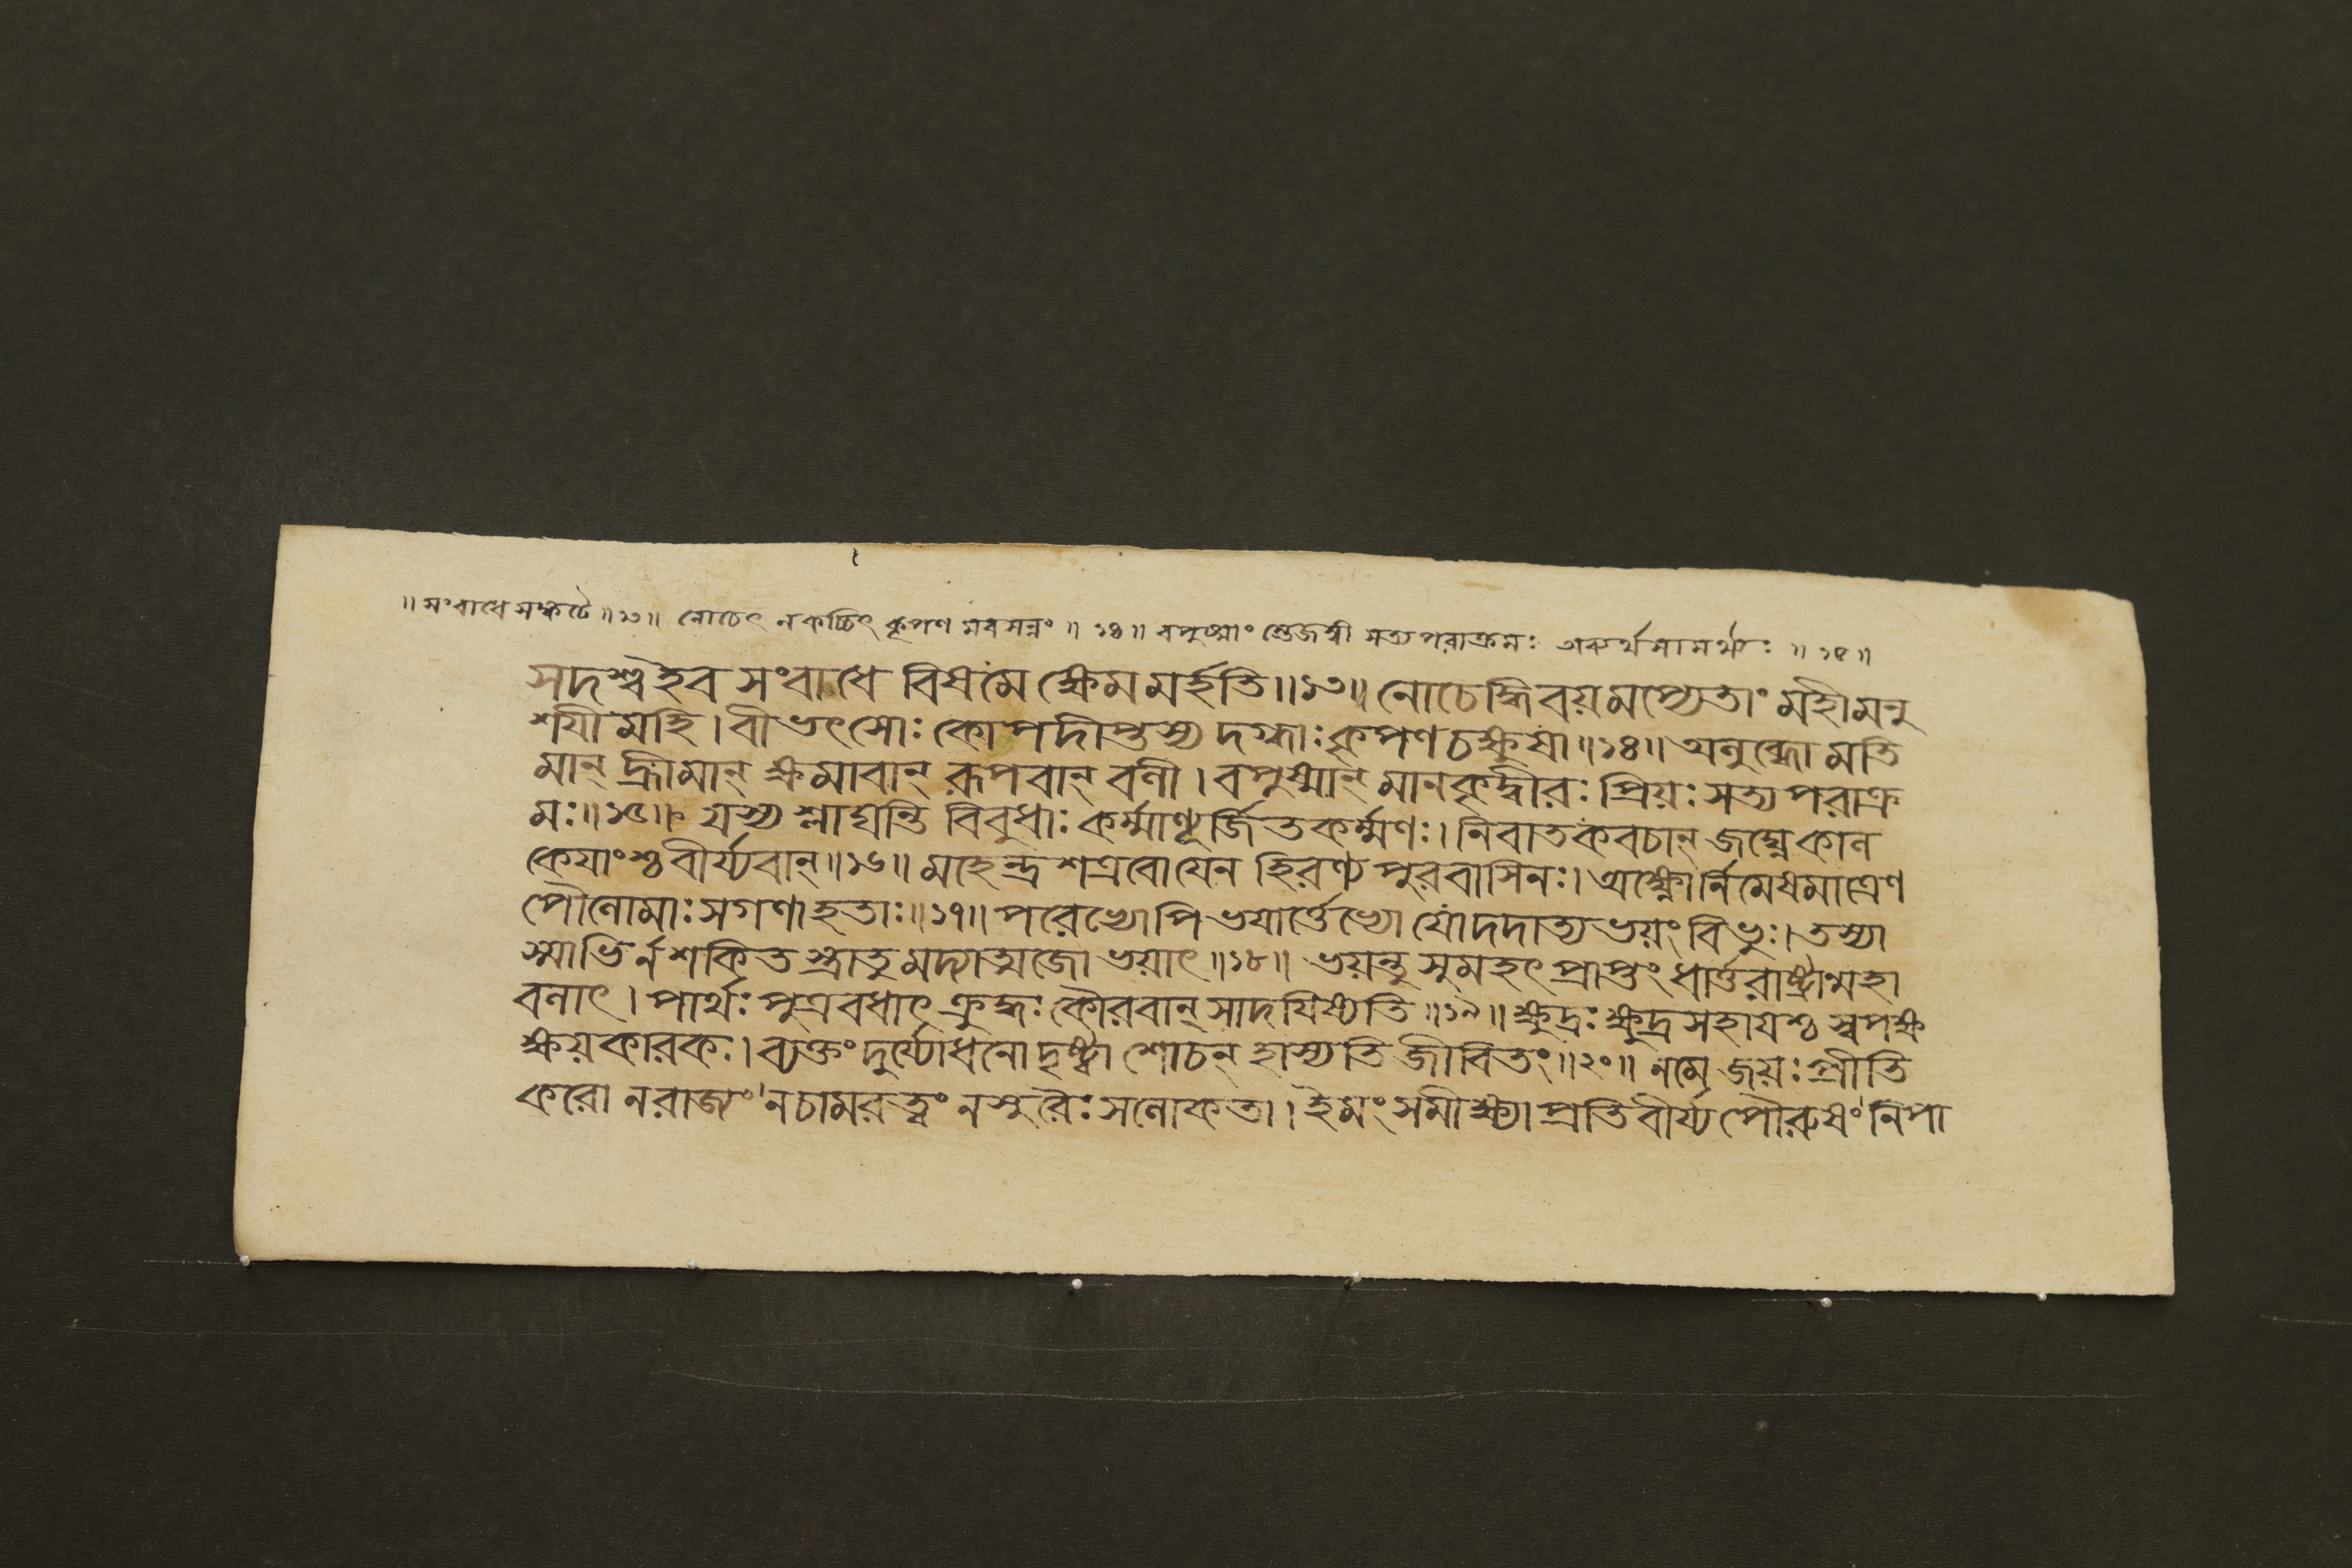 ॥ সংবাধে সঙ্কটে ॥ ১৩ ॥ নোচেৎ নকচ্চিৎ কৃপণ মবসন্নং ॥ ১৪ ॥ বপুষ্মাং স্তেজস্বী সত্যপরাক্রমঃ ॥ ১৫ ॥
সদশ্ব ইব সংবাধে বিষমে ক্ষেমমর্হতি ॥ ১৩ ॥ নোচেদ্ধি বয়মপ্যেতাং মহীমনু
শযীমহি । বীভৎসোঃ কোপদীপ্তস্য দগ্ধাঃ কৃপণচক্ষুষা ॥ ১৪ ॥ অলুব্ধো মতি
মান্ হ্রীমান্ ক্ষমাবান্ রূপবান্ বলী । বপুষ্মান্ মানকৃদ্বীরঃ প্রিয়ঃ সত্যপরাক্র
মঃ ॥ ১৫ ॥ যস্য শ্লাঘন্তি বিবুধাঃ কর্ম্মাণ্যূর্জিতকর্ম্মণঃ । নিবাতকবচান্ জঘ্নে কাল
কেযাংশ্চ বীর্য্যবান্ ॥ ১৬ ॥ মহেন্দ্রশত্রবো যেন হিরণ্যপুরবাসিনঃ । অক্ষ্ণোর্নিমেষমাত্রেণ
পৌলোমাঃ সগণা হতাঃ ॥ ১৭ ॥ পরেভ্যোপি ভযার্ত্তেভ্যো যো দদাত্যভয়ং বিভুঃ । তস্যা
স্মাভির্ন শকিতস্ত্রাতুমদ্যাত্মজো ভয়াৎ ॥ ১৮ ॥ ভয়ন্তু সুমহৎ প্রাপ্তং ধার্ত্তরাষ্ট্রান্মহা
বলাৎ । পার্থঃ পুত্রবধাৎ ক্রুদ্ধঃ কৌরবান্ সাদযিষ্যতি ॥ ১৯ ॥ ক্ষুদ্রঃ ক্ষুদ্রসহাযশ্চ স্বপক্ষ
ক্ষয়কারকঃ । ব্যক্তং দুর্য্যোধনো দৃষ্ট্বা শোচন্ হাস্যতি জীবিতং ॥ ২০ ॥ নমে জয়ঃ প্রীতি
করো নরাজ্যং নচামরত্বং নসুরৈঃ সলোকতা । ইমং সমীক্ষ্যাপ্রতিবীর্য্যপৌরুষং নিপা